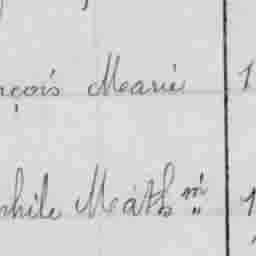 nçois Marie 1
phile Math 1